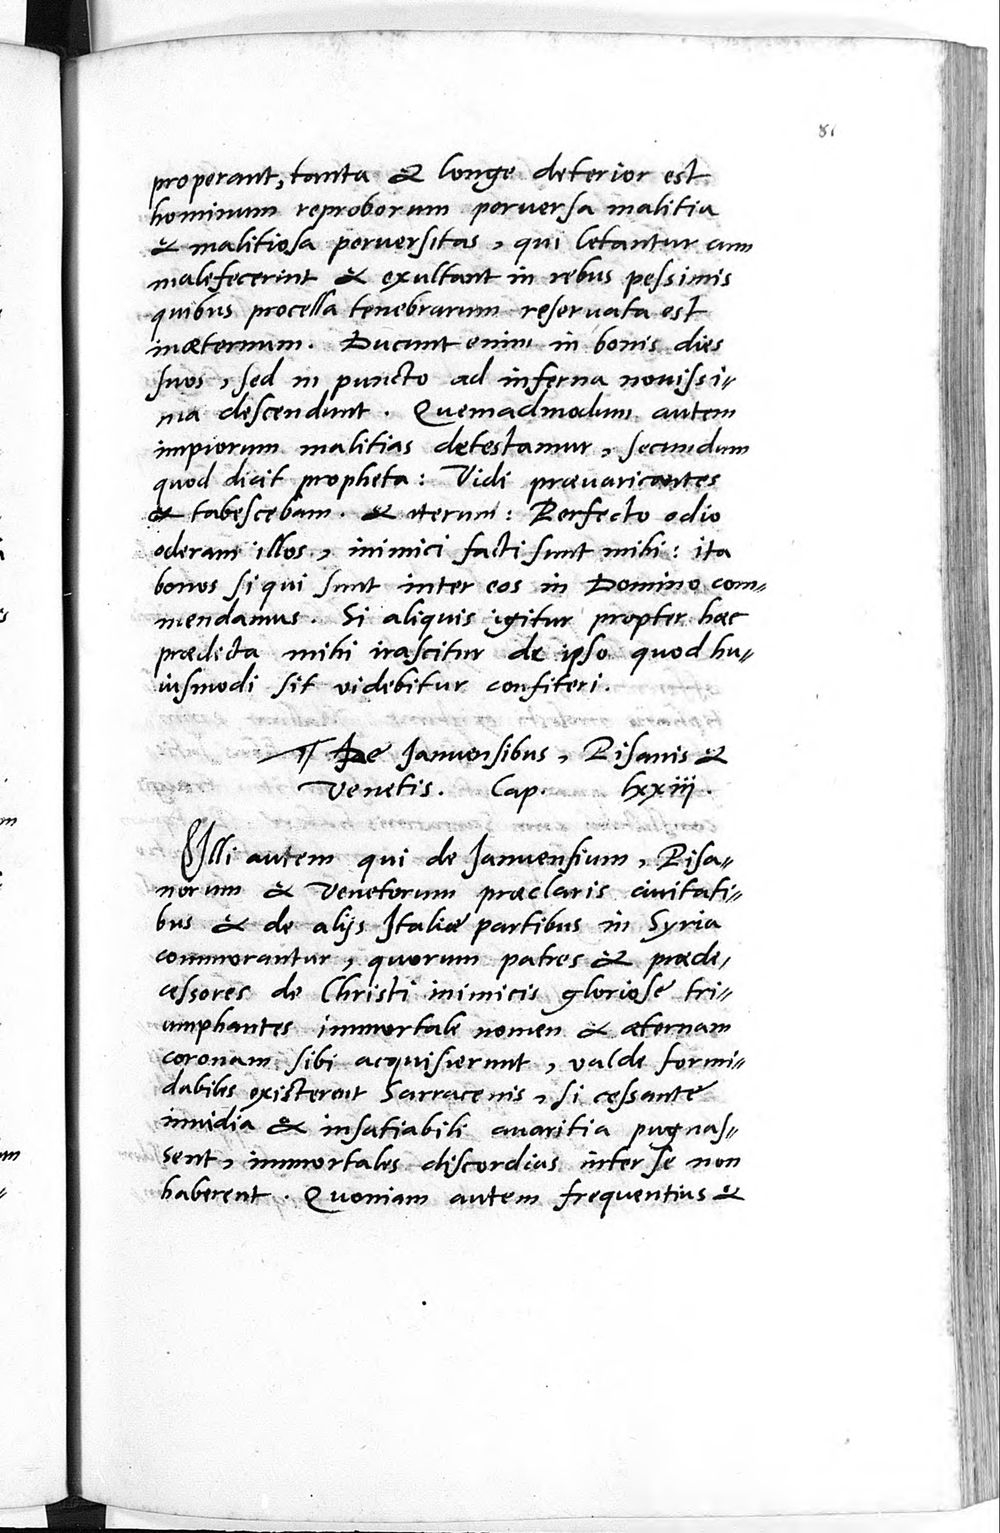 81
properant, tanta & longe deterior est
hominum reproborum perversa malitia
& malitiosa perversitas, qui letantur cum
malefecerint & exultant in rebus pessimis
quibus procella tenebrarum reservata est
inæternum. Ducunt enim in bonis dies
suos, sed in puncto ad inferna novissi-
ma descendunt. Quemadmodum autem
impiorum malitias detestamur, secundum
quod dicit propheta: Vidi prævaricantes
& tabescebam. & iterum: Perfecto odio
oderam illos, inimici facti sunt mihi: ita
bonos si qui sunt inter eos in Domino com-
mendamus. Si aliquis igitur propter hæc
prædicta mihi irascitur de ipso quod hu-
iusmodi sit videbitur confiteri.
¶ De Januensibus, Pisanis &
Venetis. Cap. lxxiij.
Illi autem qui de Januensium, Pisa-
norum & Venetorum præclaris civitati-
bus & de alijs Italiæ partibus in Syria
commorantur, quorum patres & præde-
cessores de Christi inimicis gloriose tri-
umphantes immortale nomen & æternam
coronam sibi acquisierunt, valde formi-
dabiles existerent Sarracenis, si cessante
invidia & insatiabili avaritia pugnas-
sent, immortales discordias inter se non
haberent. Quoniam autem frequentius &